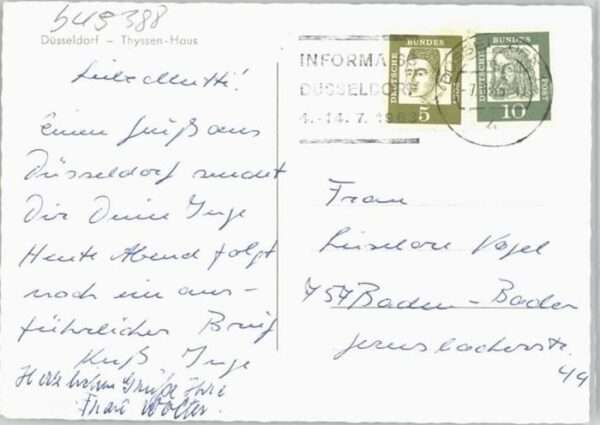 bu9388
Düsseldorf – Thyssen-Haus
Liebe Mutti!
Einen Gruß aus
Düsseldorf sendet
Dir Deine Inge
Heute Abend folgt
noch ein aus-
führlicher Brief
Kuß Inge
Herzlichen Grüße Ihre
Frau Wolter.
INFORMA
DÜSSELDORF
4.-14. 7. 1963
DEUTSCHE
BUNDES
POST
5
DEUTSCHE
BUNDES
POST
10
Frau
Liselore Vogel
757 Baden-Baden
44